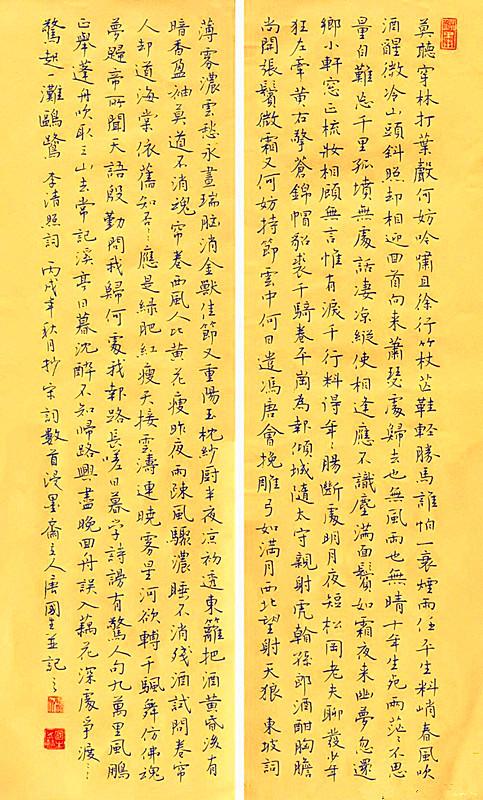 莫聽穿林打葉聲何妨吟嘯且徐行竹杖芒鞋輕勝馬誰怕一蓑煙雨任平生料峭春風吹
酒醒微冷山頭斜照却相迎回首向来蕭瑟處歸去也無風雨也無晴十年生死兩茫々不思
量自難忘千里孤墳無處話凄凉縱使相逢應不識塵滿面鬢如霜夜来幽夢忽還
鄉小軒窓正梳妝相顧無言惟有淚千行料得年腸斷處明月夜短松岡老夫聊發少年
狂左牽黄右擎蒼錦帽貂裘千騎卷平崗為報傾城隨太守親射虎孫郎酒酣胸膽
尚開張鬢微霜又何妨持節雲中何日遣馮唐會挽雕弓如滿月西北望射天狼 東坡詞
薄霧濃雲愁永晝瑞腦消金獸佳節又重陽玉枕紗厨半夜凉初透東籬把酒黄昏後有
暗香盈袖莫道不消魂帘卷西風人比黄花瘦昨夜雨疎風驟濃睡不消殘酒試問卷帘
人却道海棠依舊知否々應是綠肥紅瘦天接雲濤連曉霧星河欲轉千帆舞仿佛魂
夢歸帝所聞天語殷勤問我歸何處我報路長嗟日暮學詩謾有驚人句九萬里風鵬
正舉蓬舟吹取三山去常記溪亭日暮沈醉不知歸路興盡晚回舟誤入藕花深處爭渡々
驚起一灘鷗鷺 李清照詞 丙戌年秋月抄宋詞數首浸墨齋主人唐國生並記之